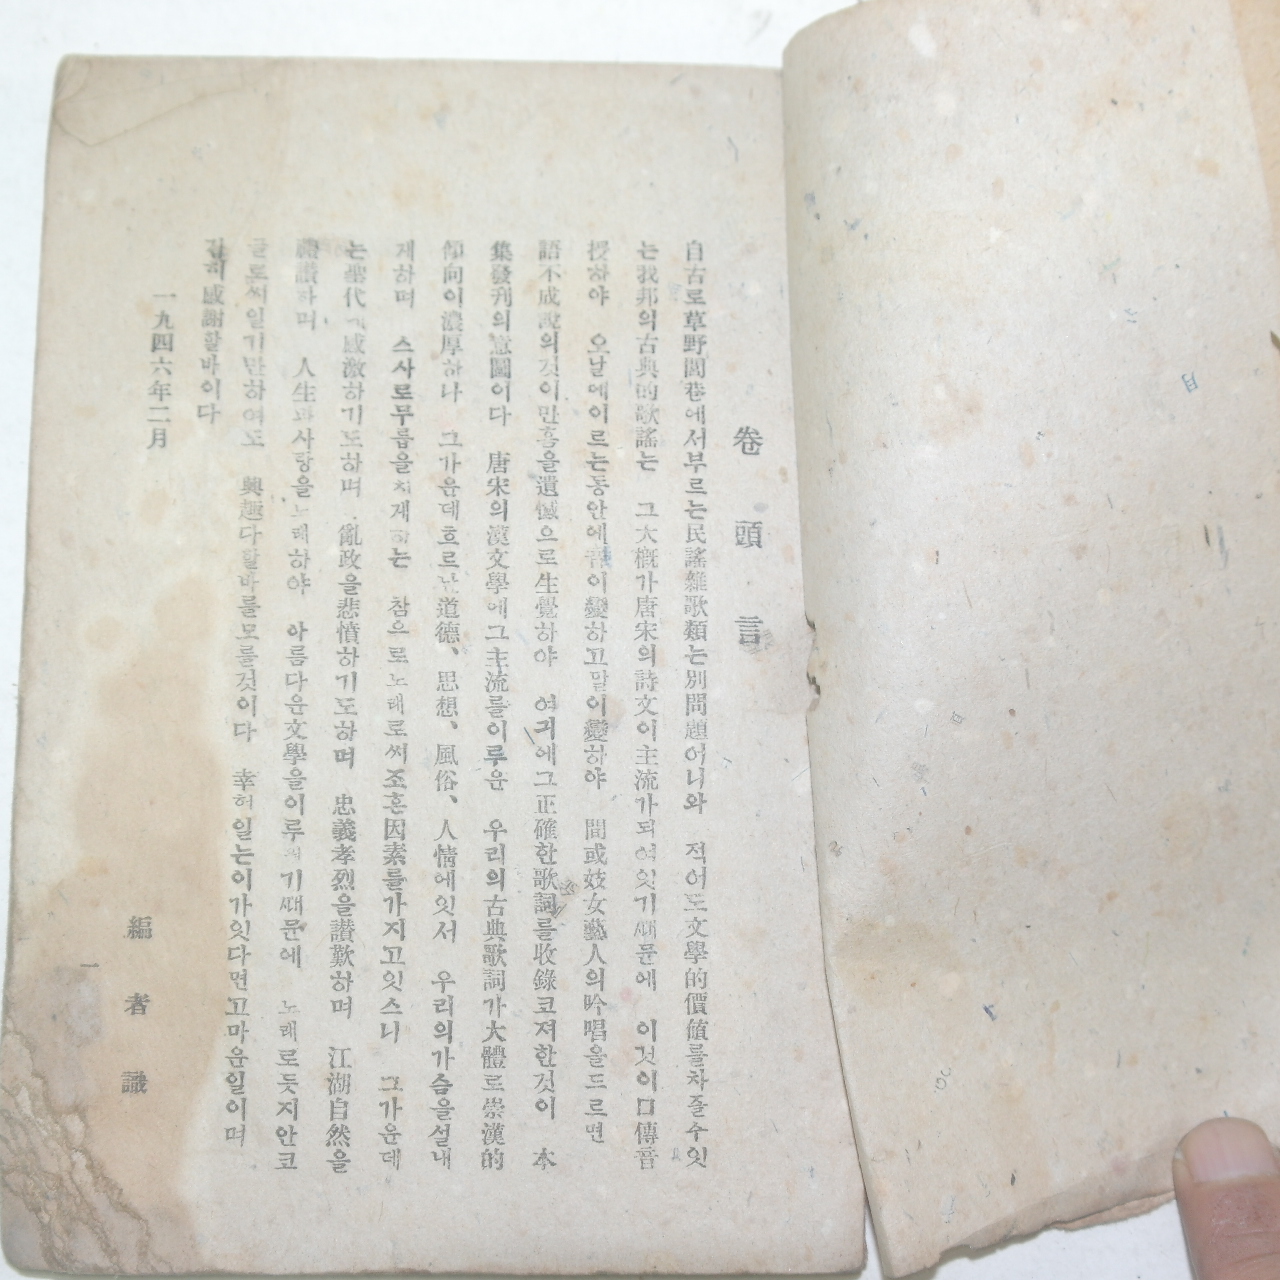 卷頭言
自古로草野閭巷에서부르는民謠雜歌類는別問題어니와 적어도文學的價値를차즐수잇
는我邦의古典的歌謠는 그大槪가唐宋의詩文이主流가되여잇기ᄯᅢ문에 이것이口傳音
授하야 오날에이르는동안에音이變하고말이變하야 間或妓女藝人의吟唱을드르면
語不成說의것이만흠을遺憾으로生覺하야 여긔에그正確한歌詞를收錄코져한것이 本
集發刊의意圖이다 唐宋의漢文學에그主流를이루운 우리의古典歌詞가大體로崇漢的
傾向이濃厚하나 그가운데흐르난道德、思想、風俗、人情에잇서 우리의가슴을설내
게하며 스사로무릅을치게하는 참으로노래로써조흔因素를가지고잇스니 그가운데
는聖代에感激하기도하며 亂政을悲憤하기도하며 忠義孝烈을讃歎하며 江湖自然을
禮讃하며 人生과사랑을노래하야 아름다운文學을이루웟기ᄯᅢ문에 노래로듯지안코
글로써일기만하여도 興趣다할바를모를것이다 幸혀일는이가잇다면고마운일이며
깁히感謝할바이다
一九四六年二月
編者識
一